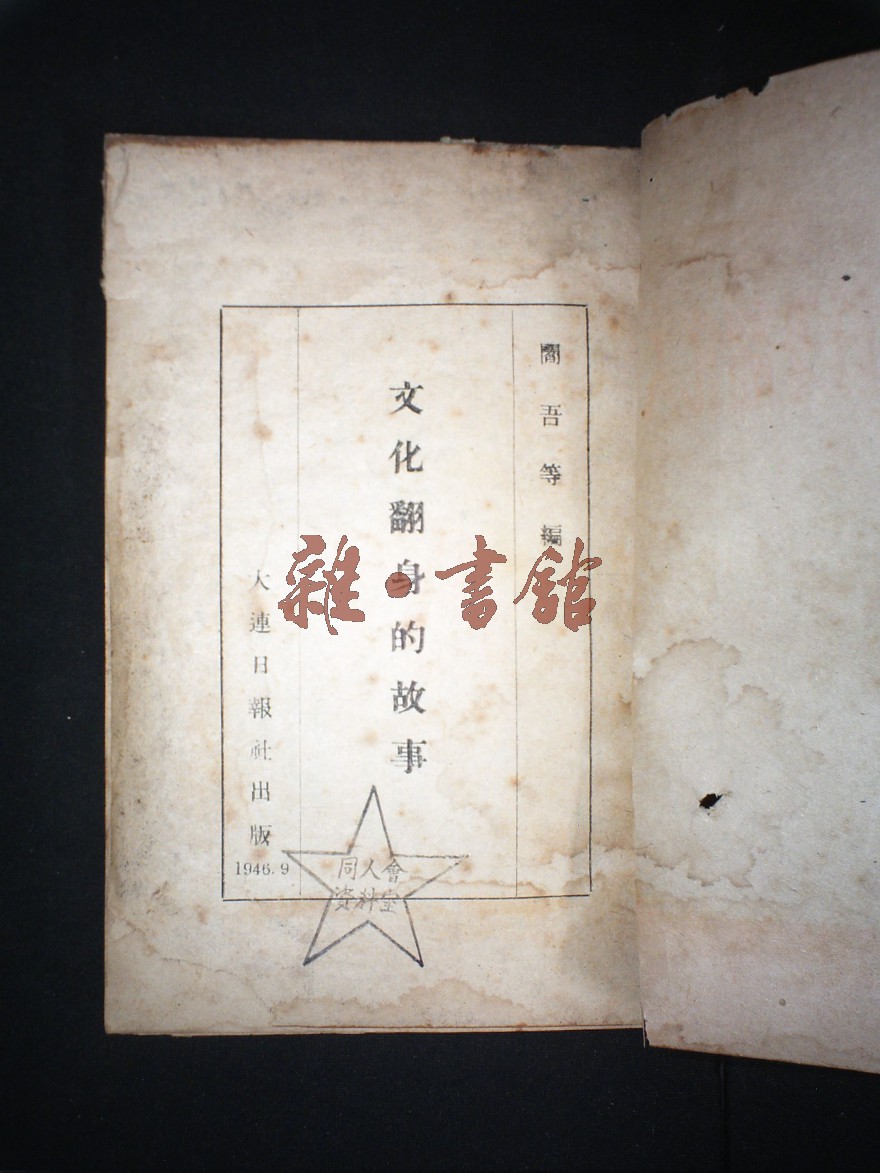 閻吾等編
文化翻身的故事
大連日報社出版
1946.9
同人會
資料室
雜·書館